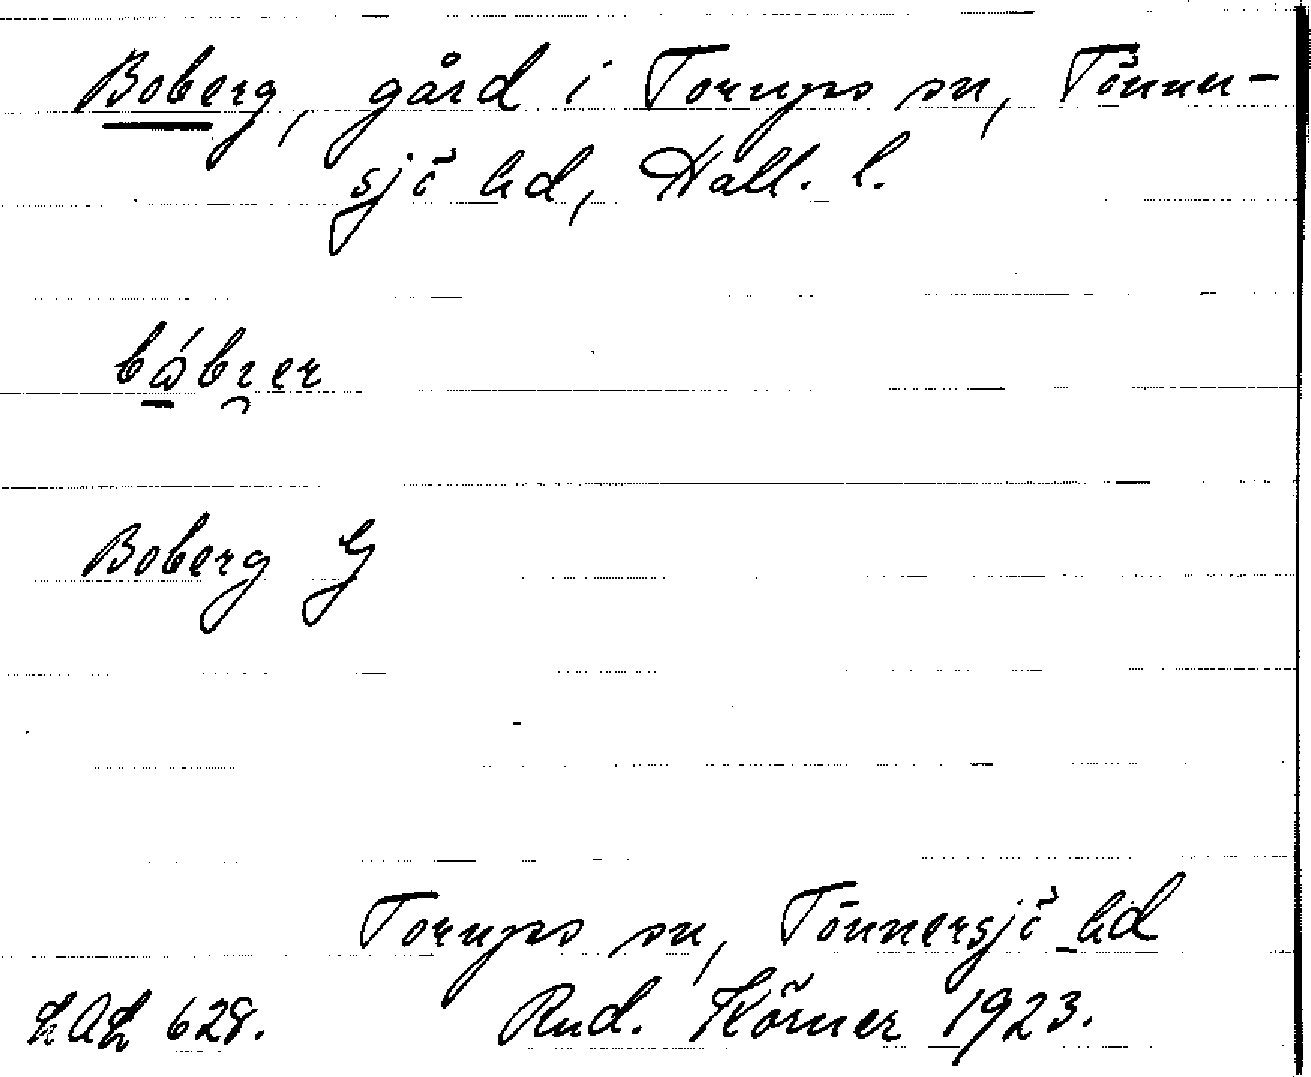 Boberg, gård i Torups sn, Tönner-
sjö hd, Hall. l.
Boberg G
Torups sn, Tönnersjö hd
LAL 628. Rud. Körner 1923.